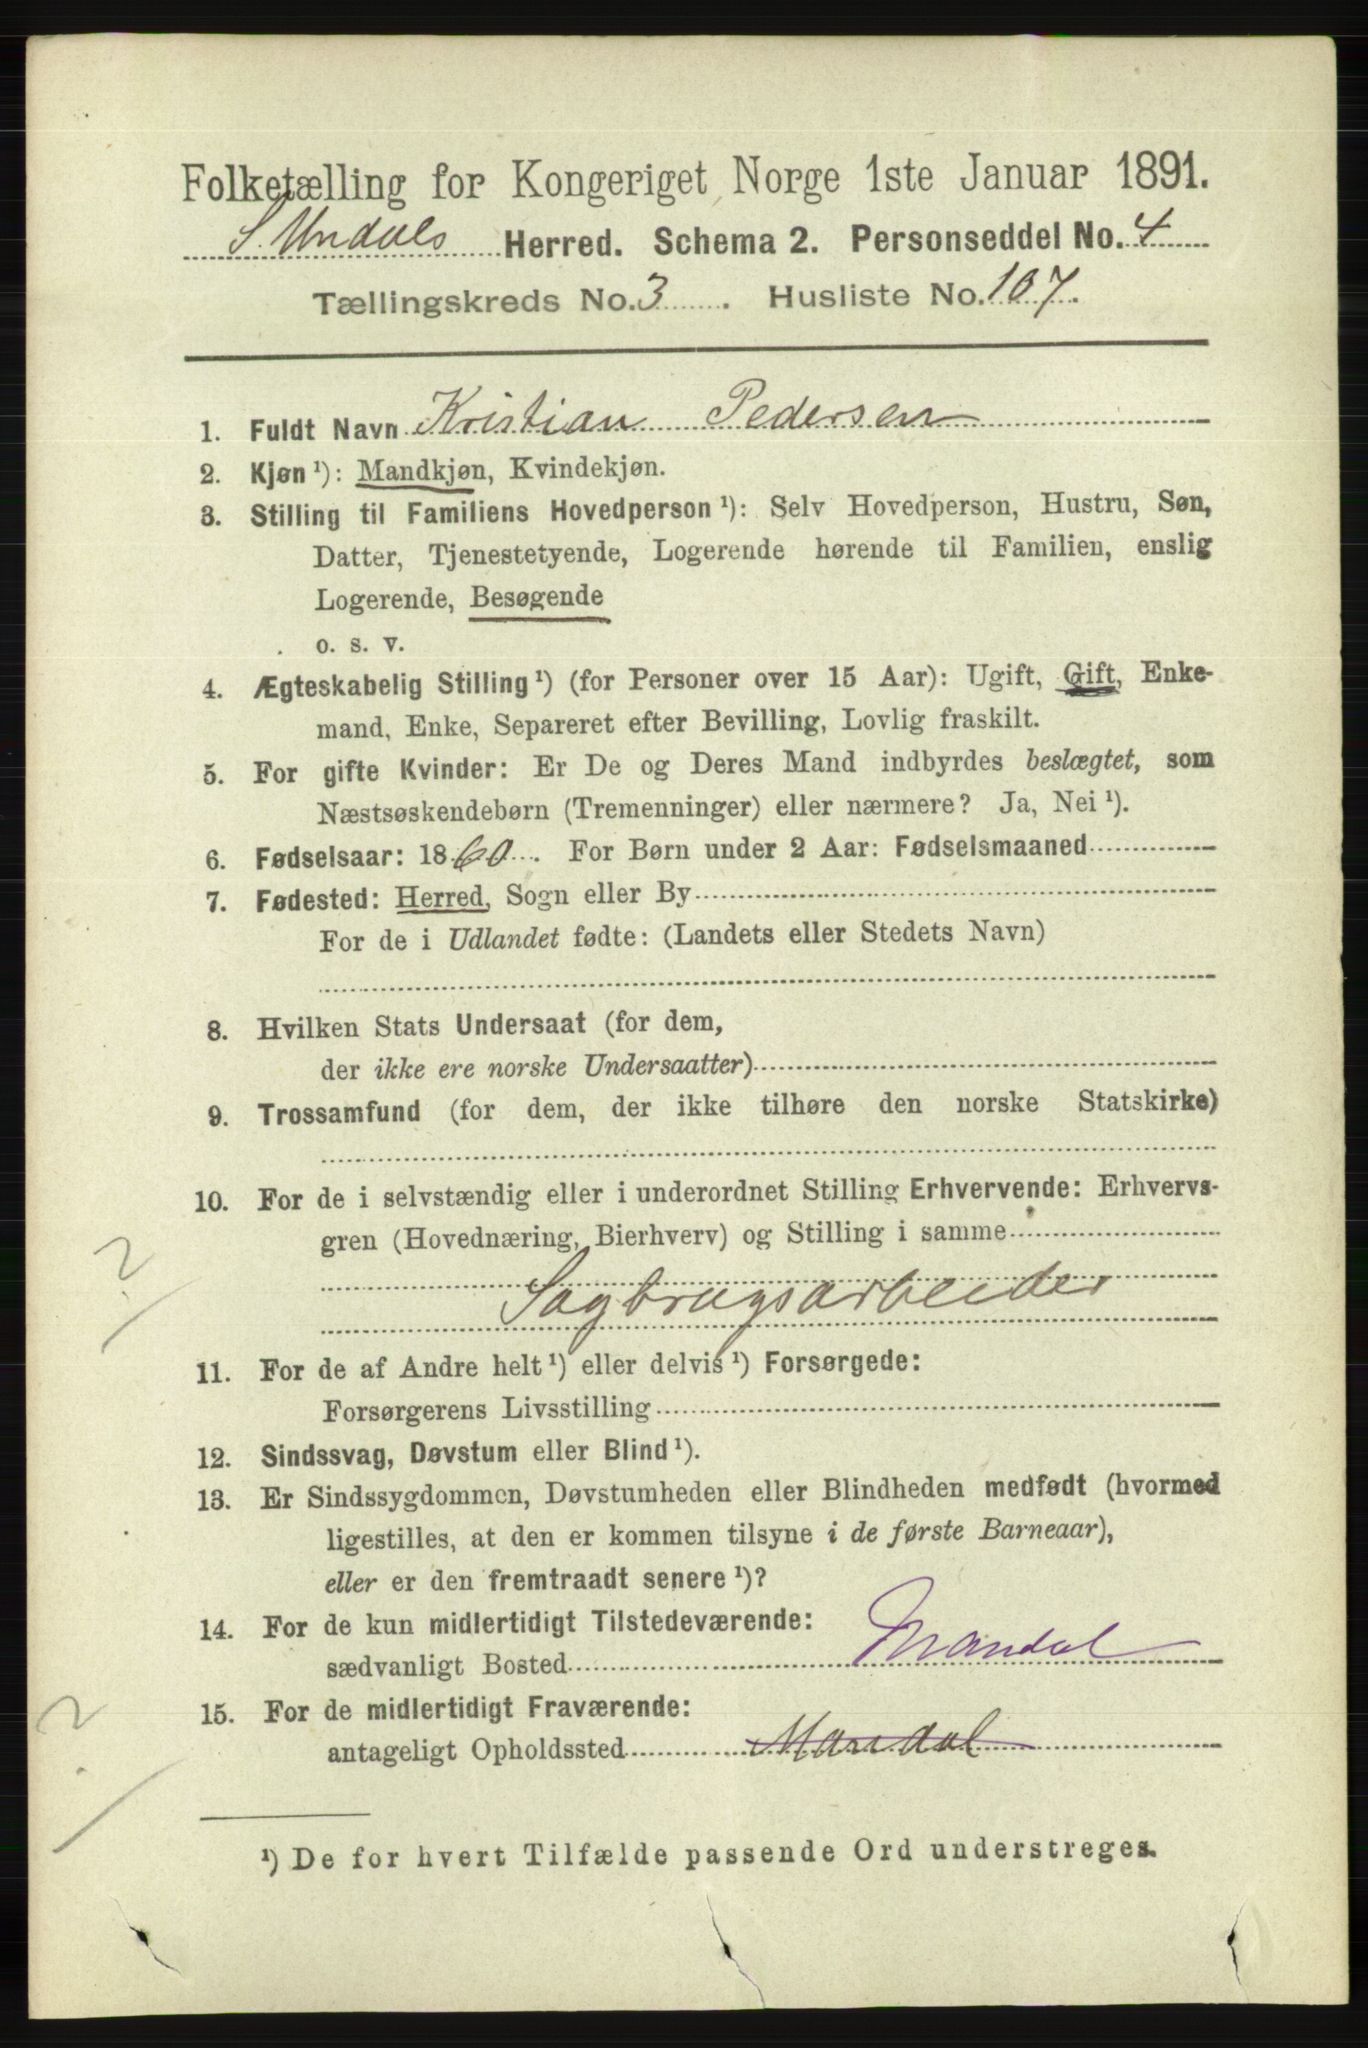 Folketælling for Kongeriget Norge 1ste Januar 1891.
S. Undals Herred. Schema 2. Personseddel No. 4
Tællingskreds No. 3. Husliste No. 107.
1. Fuldt Navn Kristian Pedersen
2. Kjøn¹): Mandkjøn, Kvindekjøn.
3. Stilling til Familiens Hovedperson¹): Selv Hovedperson, Hustru, Søn,
Datter, Tjenestetyende, Logerende hørende til Familien, enslig
Logerende, Besøgende
o. s. v.
4. Ægteskabelig Stilling¹) (for Personer over 15 Aar): Ugift, Gift, Enke-
mand, Enke, Separeret efter Bevilling, Lovlig fraskilt.
5. For gifte Kvinder: Er De og Deres Mand indbyrdes beslægtet, som
Næstsøskendebørn (Tremenninger) eller nærmere? Ja, Nei¹).
6. Fødselsaar: 1860. For Børn under 2 Aar: Fødselsmaaned
7. Fødested: Herred, Sogn eller By
For de i Udlandet fødte: (Landets eller Stedets Navn)
8. Hvilken Stats Undersaat (for dem,
der ikke ere norske Undersaatter)
9. Trossamfund (for dem, der ikke tilhøre den norske Statskirke)
10. For de i selvstændig eller i underordnet Stilling Erhvervende: Erhvervs-
gren (Hovednæring, Bierhverv) og Stilling i samme
Sagbrugsarbeider
11. For de af Andre helt¹) eller delvis¹) Forsørgede:
Forsørgerens Livsstilling
12. Sindssvag, Døvstum eller Blind¹).
13. Er Sindssygdommen, Døvstumheden eller Blindheden medfødt (hvormed
ligestilles, at den er kommen tilsyne i de første Barneaar),
eller er den fremtraadt senere¹)?
14. For de kun midlertidigt Tilstedeværende:
sædvanligt Bosted Mandal
15. For de midlertidigt Fraværende:
antageligt Opholdssted Mandal
¹) De for hvert Tilfælde passende Ord understreges.